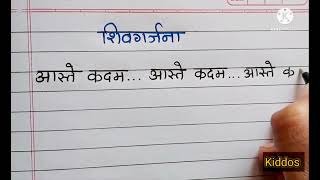 शिवगर्जना
आस्ते कदम... आस्ते कदम... आस्ते क
Kiddos